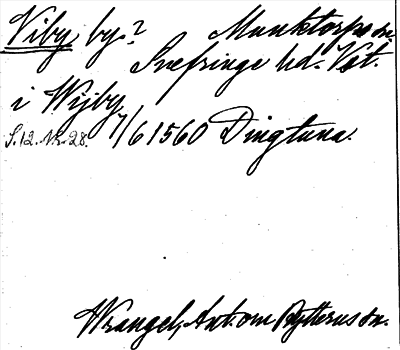 Viby by? Munktorps sn.
Snefringe hd. Vst.
i Wijby
S.12. Nr. 28. 7/6 1560 Dingtuna.
Wrangel, Ant. om Rytterns sn.